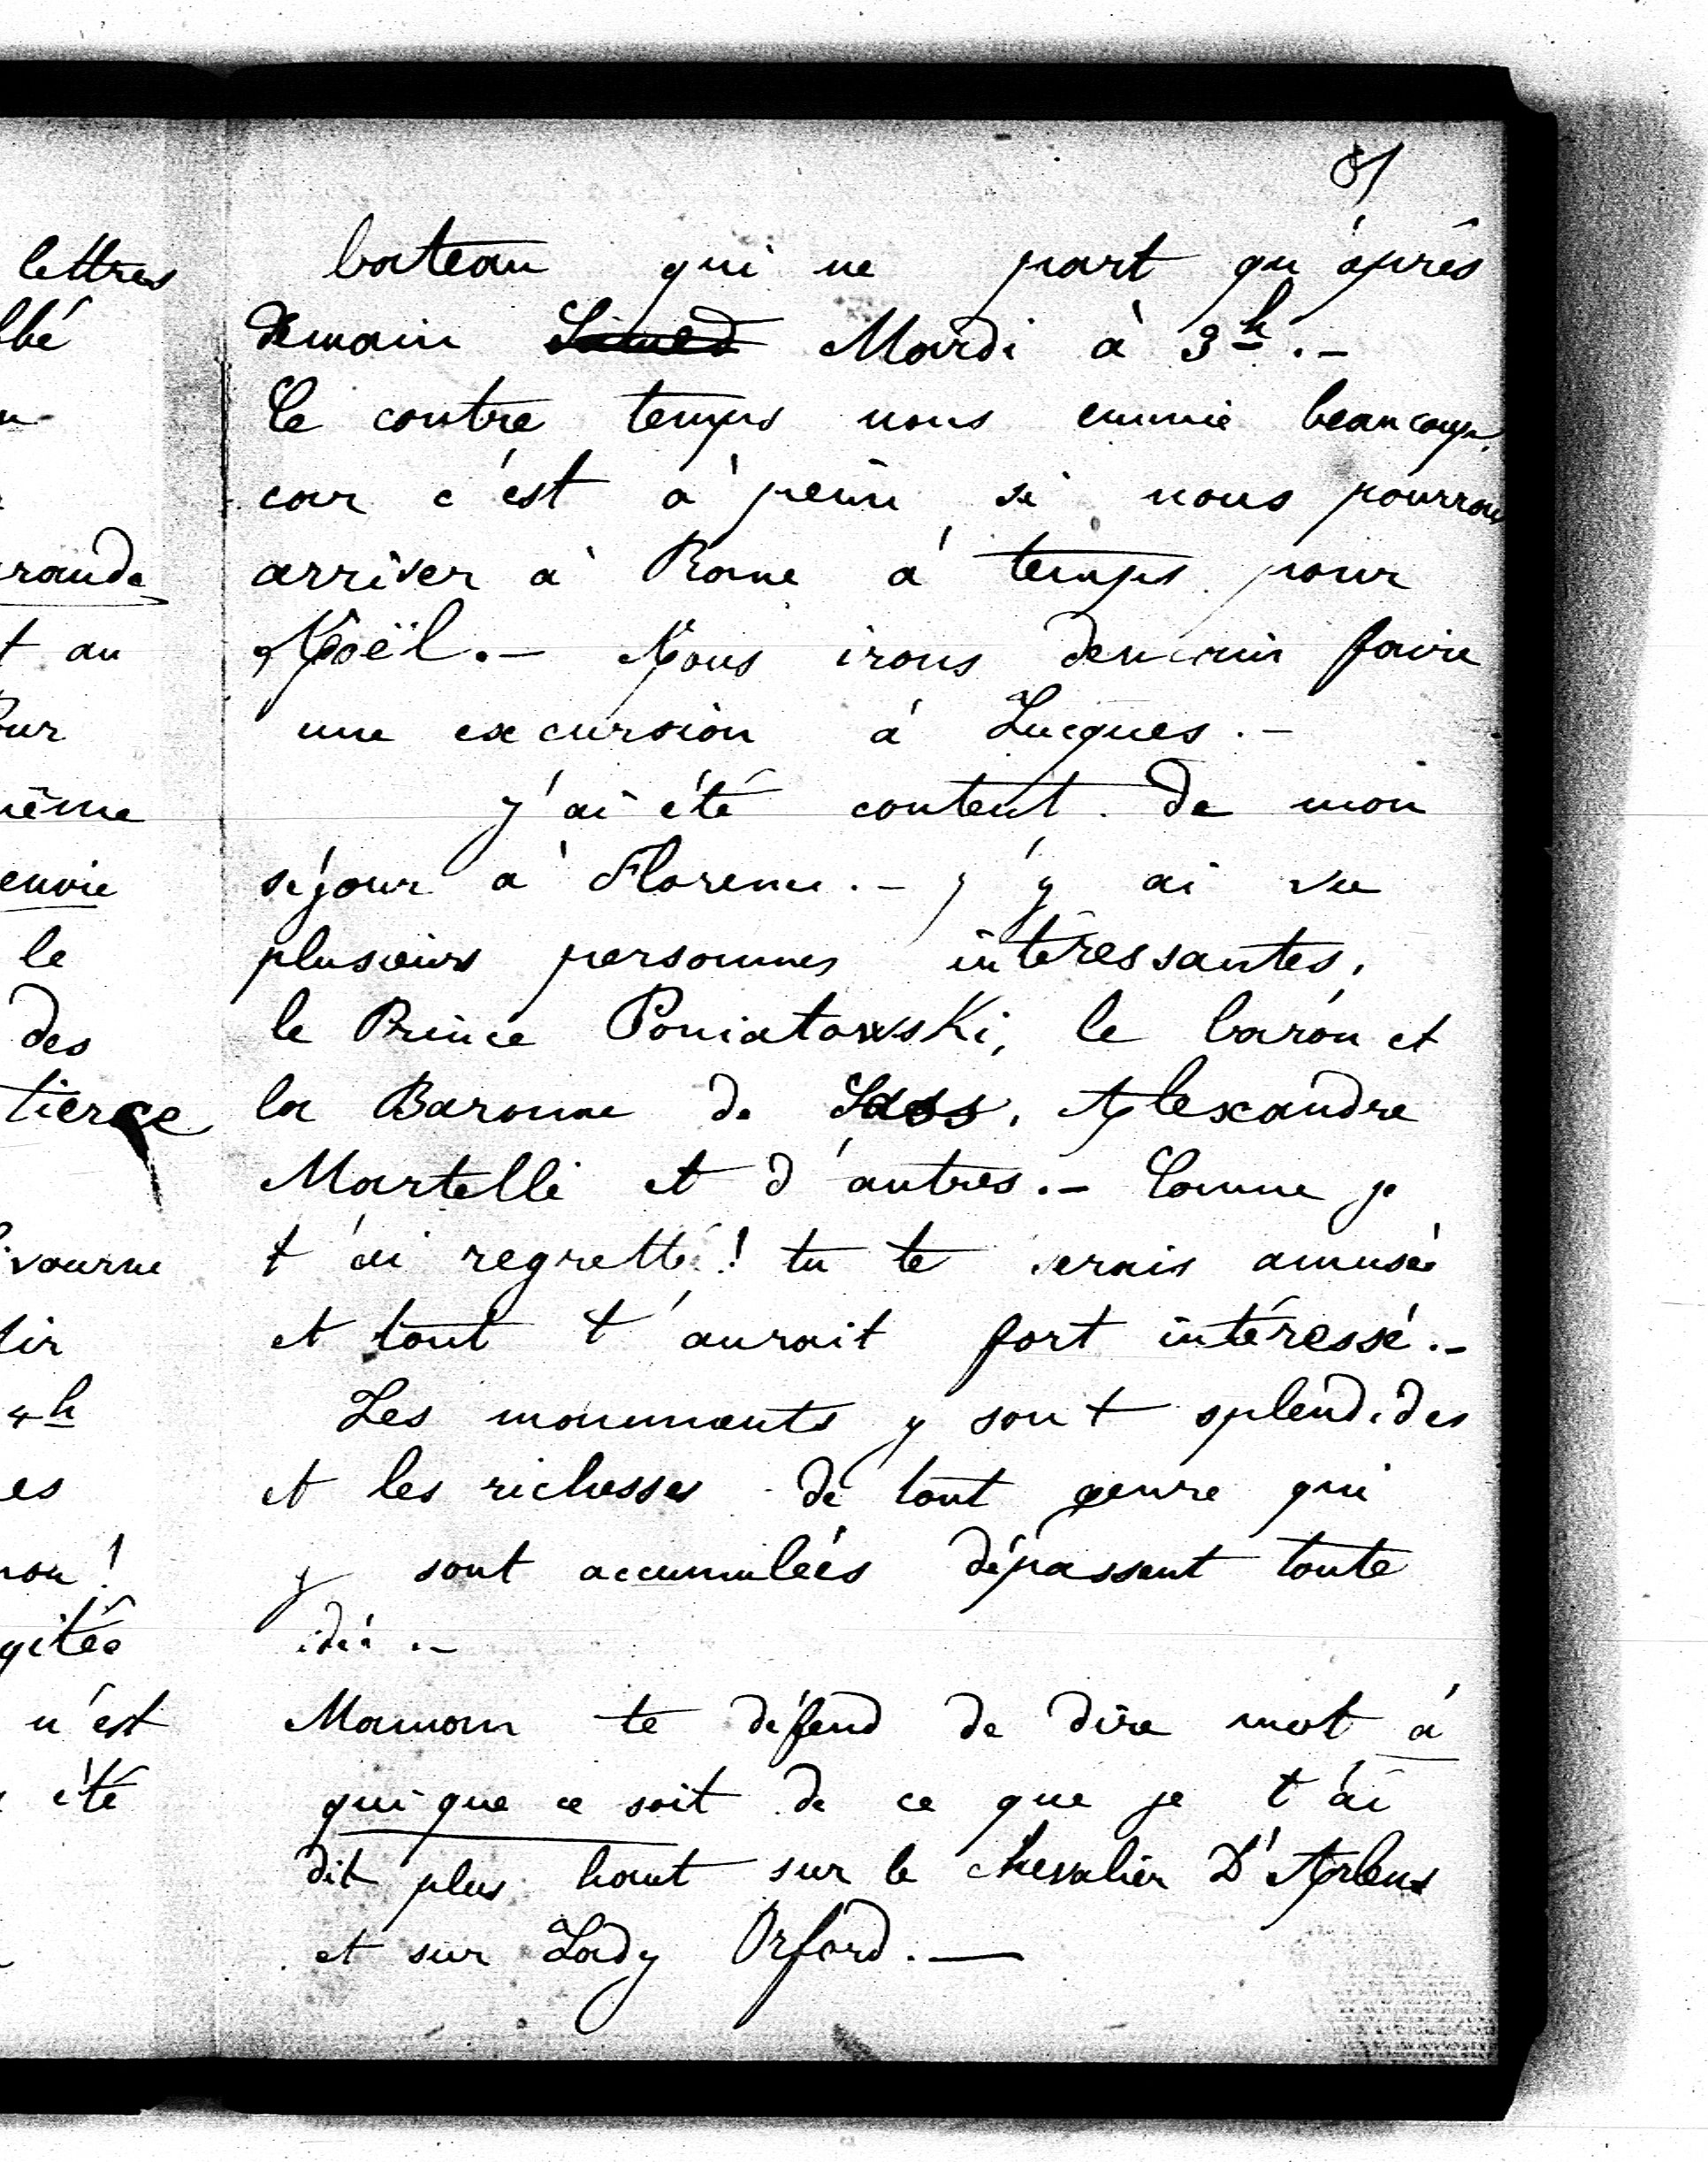 81
bateau qui ne part qu'après
demain Mardi à 3h.-
Ce contre temps nous ennuie beaucoup,
car c'est à peine si nous pourrons
arriver à Rome à temps pour
Noël.- Nous irons demain faire
une excursion à Lucques.-
J'ai été content de mon
séjour à Florence.- J'y ai vu
plusieurs personnes intéressantes,
le Prince Poniatowski, le baron et
la Baronne de Sass, Alexandre
Martelli et d'autres.- Comme je
t'ai regretté! tu te serais amusée
et tout t'aurait fort intéressé.-
Les monuments y sont splendides
et les richesses de tout genre qui
y sont accumulées dépassent toute
idée.-
Maman te défend de dire mot à
qui que ce soit de ce que je t'ai
dit plus haut sur le chevalier D'Arlens
et sur Lady Orford.-
lettres
rande
t au
ême
envie
le
des
tierce
4h
es
n'est
été